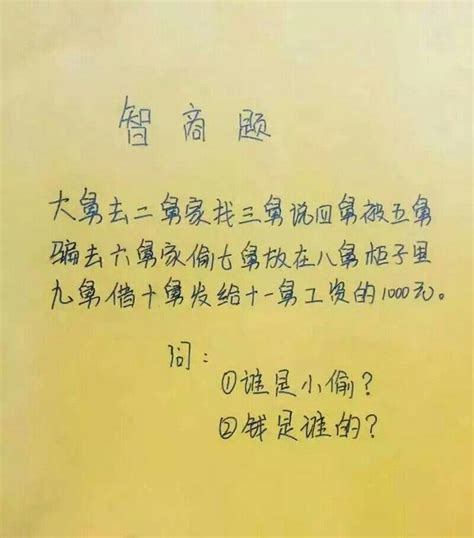 智商题
大舅去二舅家找三舅说四舅被五舅
骗去六舅家偷七舅放在八舅柜子里
九舅借十舅发给十一舅工资的1000元。
问：
①谁是小偷？
②钱是谁的？